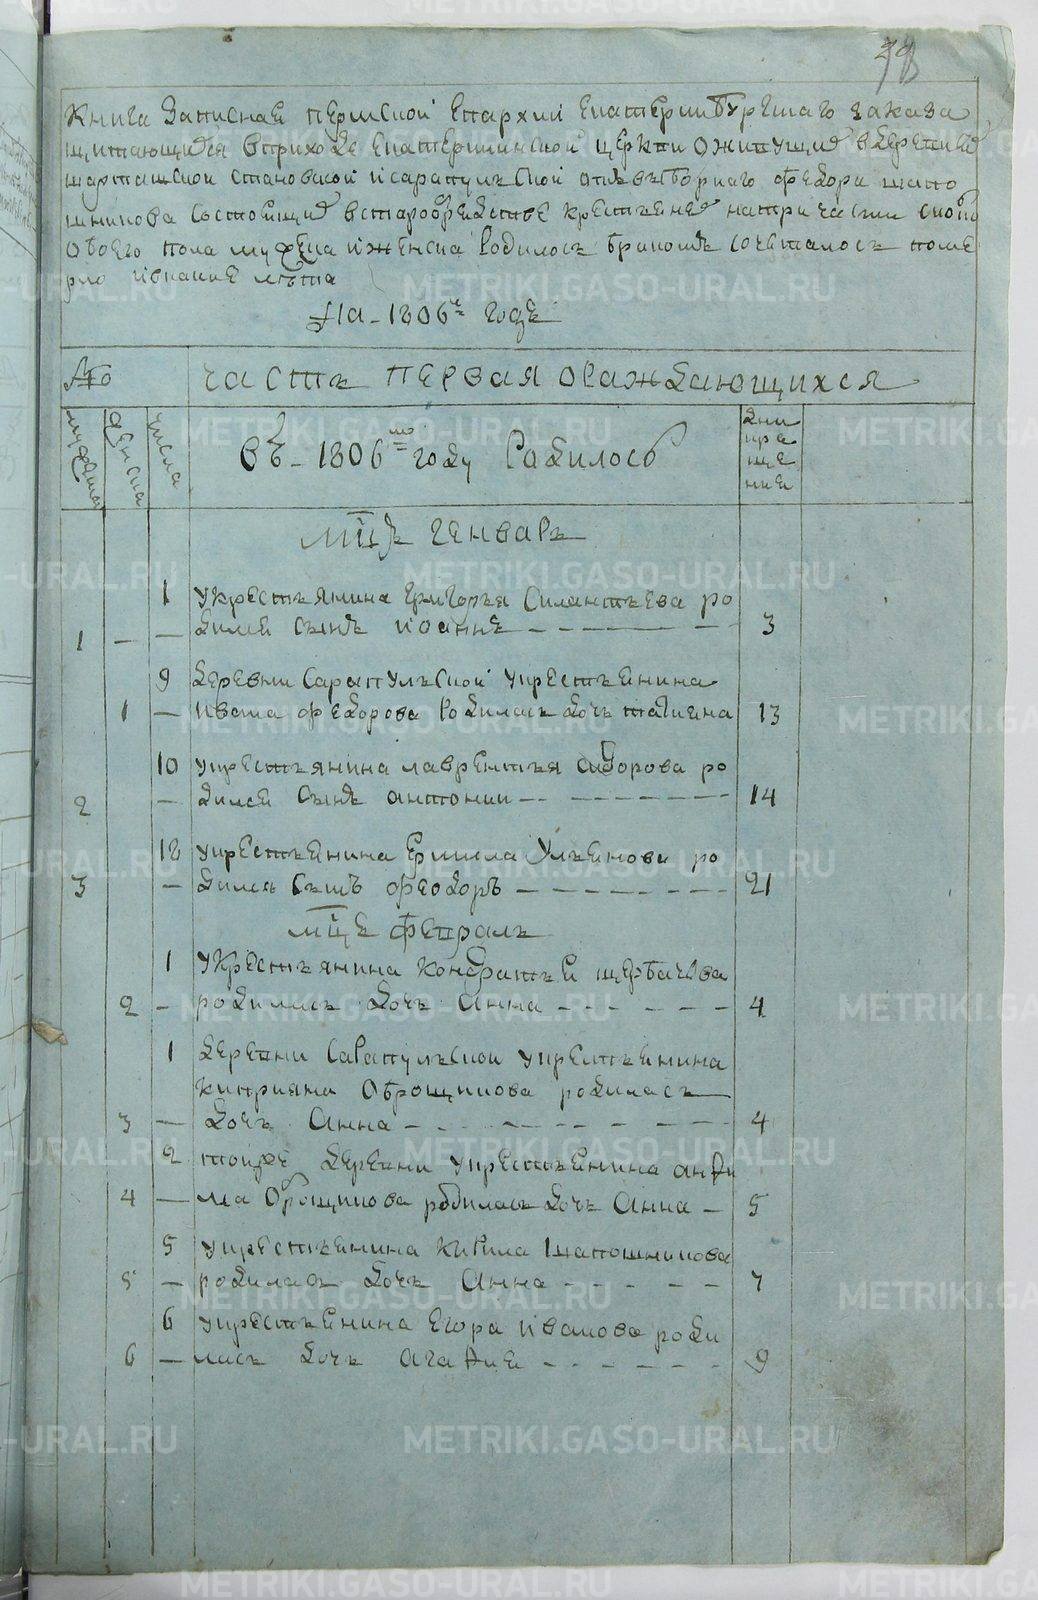 98
Книга Записная пермской Епархии Екатеринбургскаго заказа
щитающимся вприходе екатерининской церкви оживущих вдеревне
шарташской становской исарапулской отвыборнаго федора шапо
шникова состоящих встарообрядстве крестьянех натри части сколко
обоего пола мужеска иженска Родилось браком сочеталось поме
рло икакие лета
На 1806й годъ
Часть первая ораждающихся
мужеска
женска
числа
Въ 1806мъ году Радилось
дни
кре
ще
ния
Мцъ генварь
1 укрестьянина григорья Силантьева ро
1 – – дился сынъ иоаннъ 3
9 деревни Сарапулской укрестьянина
1 – ивана федорова Родилась дочь татиена 13
10 укрестьянина лаврентья сидорова ро
2 – дился сынъ антонии 14
18 укрестьянина Ермила Ульянова ро
3 – дился сынъ феодоръ 21
Мцъ февраль
1 укрестьянина кондратья щербакова
2 – родилась дочь Анна 4
1 деревни Сарапулской укрестьянина
киприяна Оброщикова родилась
3 – дочь Анна 4
2 тойже деревни укрестьянина анѳи
4 – ма Оброщикова родилась дочь Анна – 5
5 укрестьянина кирила шапошникова
5 – родилась дочь Анна 7
6 укрестьянина Егора иванова роди
6 – лась дочь агаѳия 9
METRIKI.GASO-URAL.RU